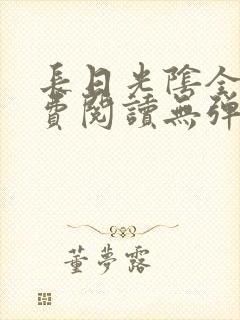 長日光陰全
費閱讀無彈
董夢露